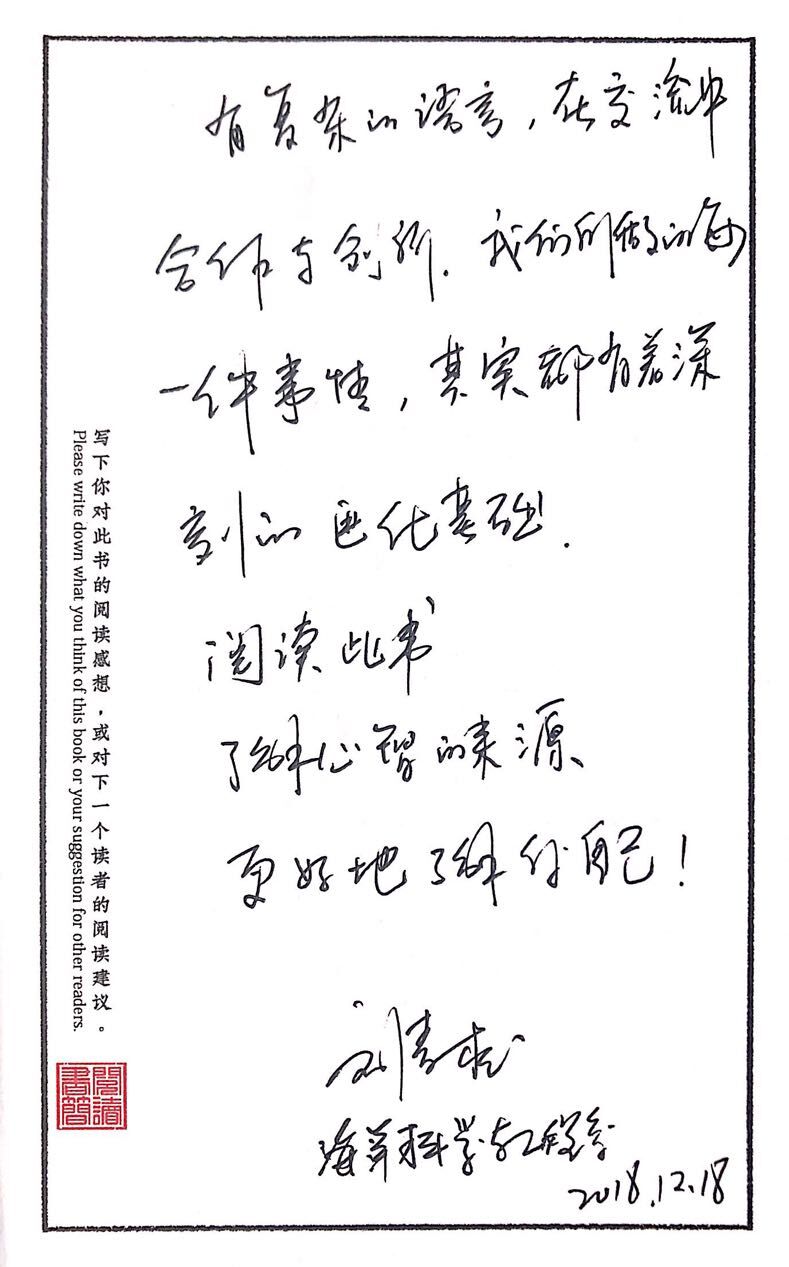 有复杂的语言，在交流中
合作与创新. 我们所做的每
一件事情，其实都有着深
刻的进化基础.
阅读此书
了解心智的来源、
更好地了解你自己！
刘青松
海洋科学与工程系
2018.12.18
写下你对此书的阅读感想，或对下一个读者的阅读建议。
Please write down what you think of this book or your suggestion for other readers.
閱讀
書簡